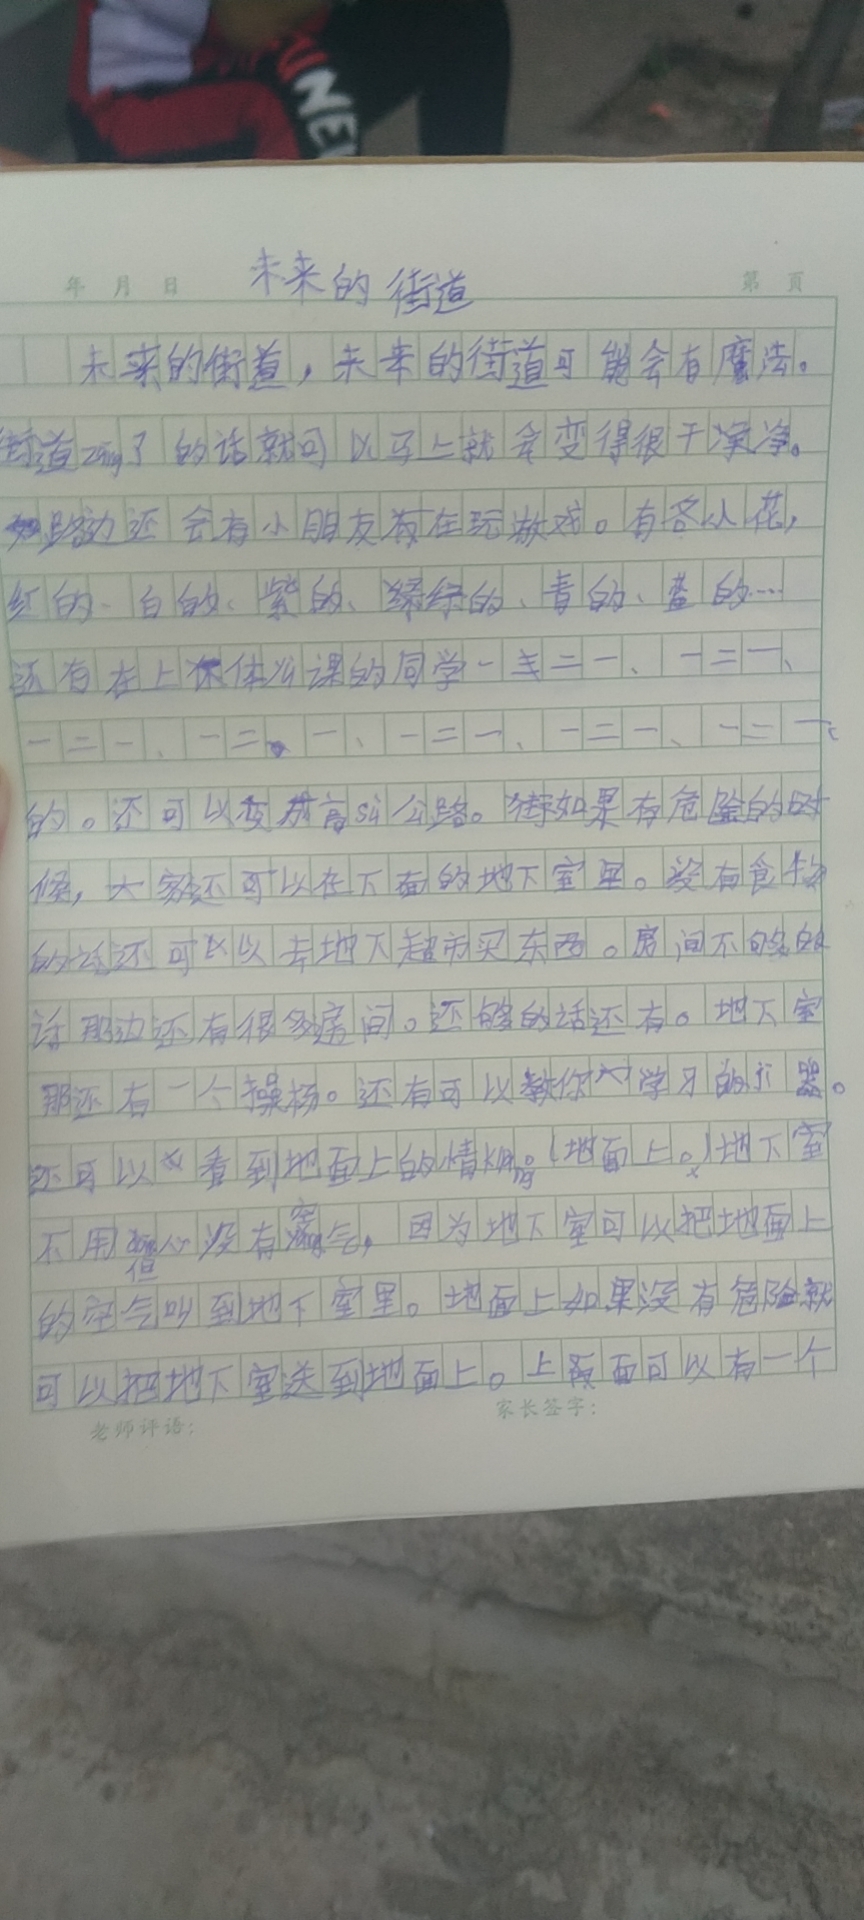 UNEW
年 月 日 未来的街道 第 页
未来的街道，未来的街道可能会有魔法。
街道zāng了的话就可以马上就会变得很干净净。
路边还会有小朋友在玩游戏。有各从花，
红的、白的、紫的、绿绿的、青的、蓝的…
还有在上体以课的同学一 二一、一二一、
一二一、一二。一、一二一、一二一、一二一、
的。还可以变成高sù公路。街如果有危险的时
候，大家还可以在下面的地下室里。没有食物
的话还可以以去地下超市买东西。房间不够的
话那边还有很多房间。还够的话还有。地下室
那还有一个操杨。还有可以教你学习的 器。
还可以看到地面上的情 。（地面上。）地下室
不用担心没有空气，因为地下室可以把地面上
的空气叫到地下室里。地面上如果没有危险就
可以把地下室送到地面上。上面可以有一个
老师评语： 家长签字：